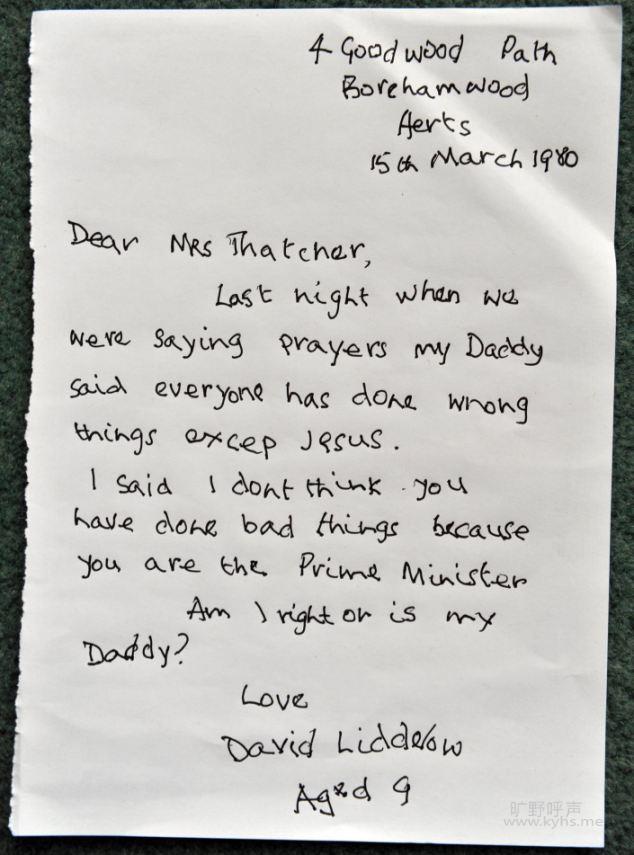 4 Goodwood Path
Borehamwood
Herts
15th March 1980
Dear Mrs Thatcher,
Last night when we
were saying prayers my Daddy
said everyone has done wrong
things excep Jesus.
I said I dont think you
have done bad things because
you are the Prime Minister
Am I right or is my
Daddy?
Love
David Liddelow
Aged 9
旷野呼声
www.kyhs.me